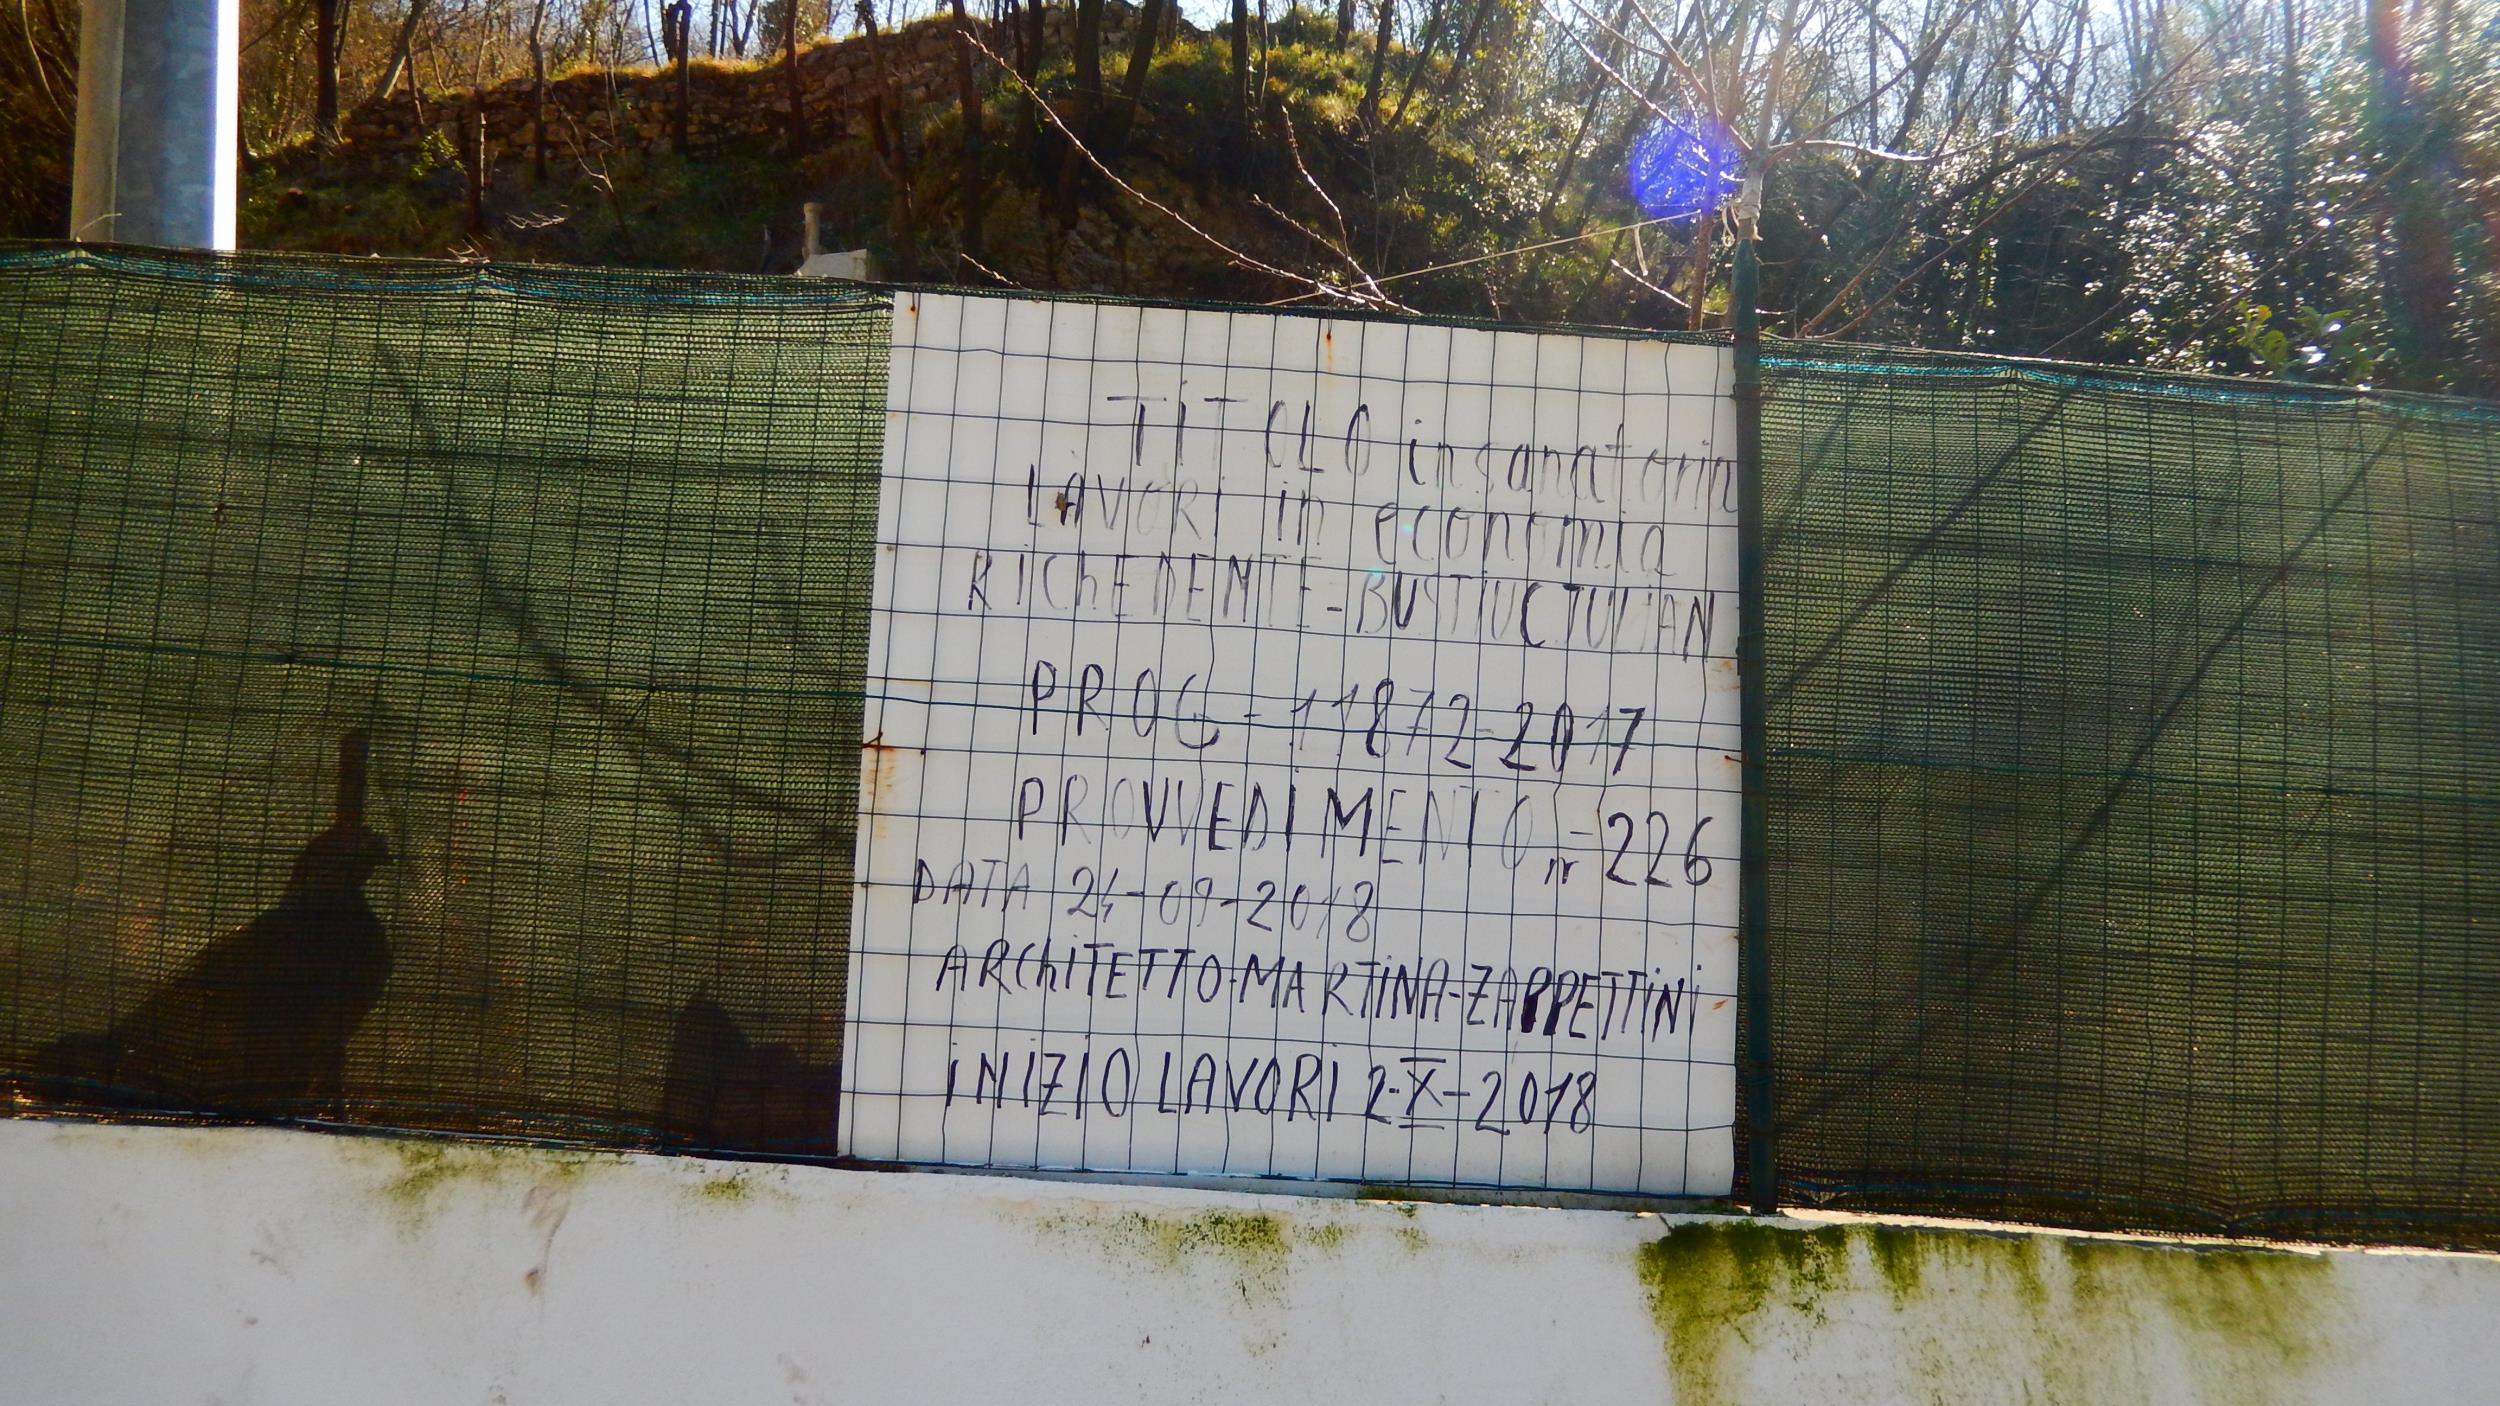 TiTOLO insanatoria
LAVORi in economia
RIChEDENTE-BUSTIUC IULIAN
PROG-11872-2017
PROVVEDiMENTO nr-226
DATA 24-09-2018
ARChiTETTO-MARTiNA-ZAPPETTiNi
iNiZiO LAVORi 2-X-2018